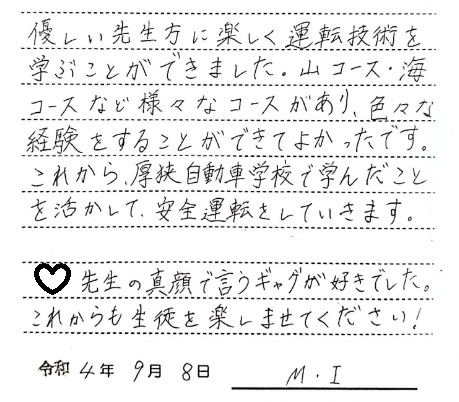 優しい先生方に楽しく運転技術を
学ぶことができました。山コース・海
コースなど様々なコースがあり、色々な
経験をすることができてよかったです。
これから、厚狭自動車学校で学んだこと
を活かして、安全運転をしていきます。
♡先生の真顔で言うギャグが好きでした。
これからも生徒を楽しませてください!
令和 4年 9月 8日 M・I